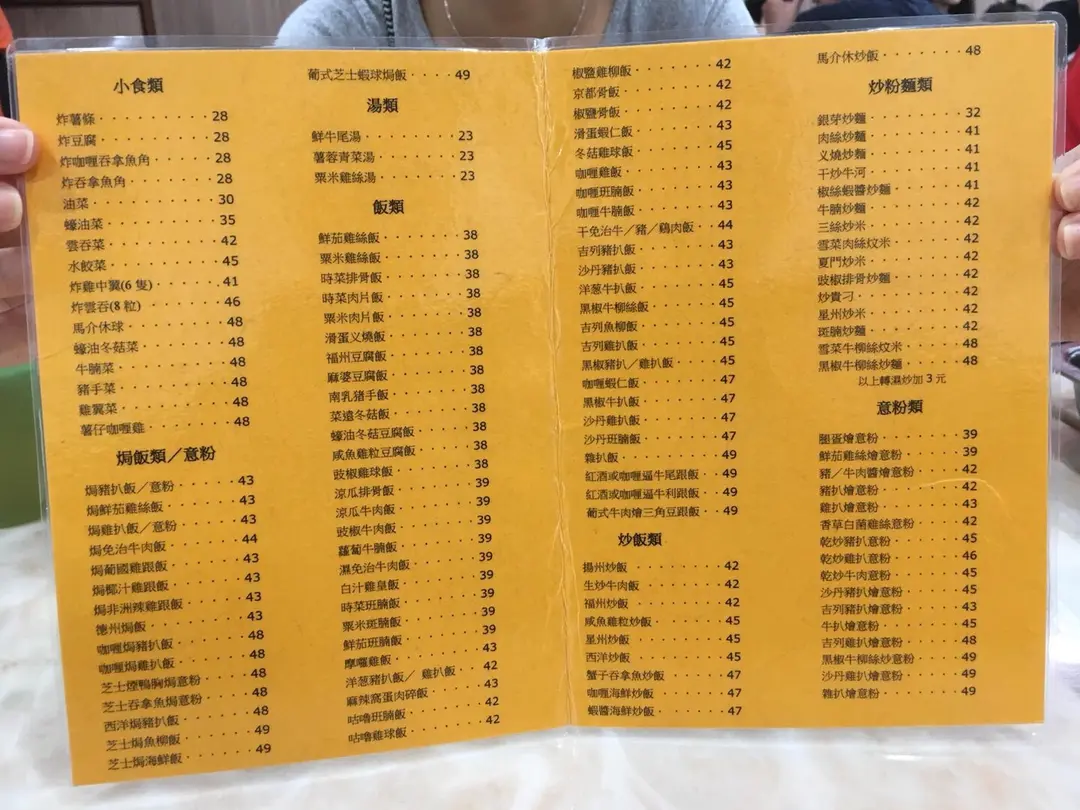 小食類
炸薯條 28
炸豆腐 28
炸咖喱吞拿魚角 28
炸吞拿魚角 28
油菜 30
蠔油菜 35
雲吞菜 42
水餃菜 45
炸雞中翼(6隻) 41
炸雲吞(8粒) 46
馬介休球 48
蠔油冬菇菜 48
牛腩菜 48
豬手菜 48
雞翼菜 48
薯仔咖喱雞 48
焗飯類／意粉
焗豬扒飯／意粉 43
焗鮮茄雞絲飯 43
焗雞扒飯／意粉 43
焗免治牛肉飯 44
焗葡國雞跟飯 43
焗椰汁雞跟飯 43
焗非洲辣雞跟飯 43
德州焗飯 43
咖喱焗豬扒飯 48
咖喱焗雞扒飯 48
芝士煙鴨胸焗意粉 48
芝士吞拿魚焗意粉 48
西洋焗豬扒飯 48
芝士焗魚柳飯 49
芝士焗海鮮飯 49
葡式芝士蝦球焗飯 49
湯類
鮮牛尾湯 23
薯蓉青菜湯 23
粟米雞絲湯 23
飯類
鮮茄雞絲飯 38
粟米雞絲飯 38
時菜排骨飯 38
時菜肉片飯 38
粟米肉片飯 38
滑蛋义燒飯 38
福州豆腐飯 38
麻婆豆腐飯 38
南乳猪手飯 38
菜遠冬菇飯 38
蠔油冬菇豆腐飯 38
咸魚雞粒豆腐飯 38
豉椒雞球飯 38
涼瓜排骨飯 39
涼瓜牛肉飯 39
豉椒牛肉飯 39
蘿蔔牛腩飯 39
濕免治牛肉飯 39
白汁雞皇飯 39
時菜班腩飯 39
粟米斑腩飯 39
鮮茄班腩飯 39
摩囉雞飯 43
洋葱豬扒飯／雞扒飯 42
麻辣窩蛋肉碎飯 43
咕嚕班腩飯 42
咕嚕雞球飯 42
椒鹽雞柳飯 42
京都骨飯 42
椒鹽骨飯 42
滑蛋蝦仁飯 43
冬菇雞球飯 45
咖喱雞飯 43
咖喱班腩飯 43
咖喱牛腩飯 43
干免治牛／豬／鷄肉飯 44
吉列豬扒飯 43
沙丹豬扒飯 43
洋葱牛扒飯 45
黑椒牛柳絲飯 45
吉列魚柳飯 45
吉列雞扒飯 45
黑椒豬扒／雞扒飯 45
咖喱蝦仁飯 47
黑椒牛扒飯 47
沙丹雞扒飯 47
沙丹班腩飯 47
雜扒飯 49
紅酒或咖喱逼牛尾跟飯 49
紅酒或咖喱逼牛利跟飯 49
葡式牛肉燴三角豆跟飯 49
炒飯類
揚州炒飯 42
生炒牛肉飯 42
福州炒飯 42
咸魚雞粒炒飯 45
星州炒飯 45
西洋炒飯 45
蟹子吞拿魚炒飯 47
咖喱海鮮炒飯 47
蝦醬海鮮炒飯 47
馬介休炒飯 48
炒粉麵類
銀芽炒麵 32
肉絲炒麵 41
义燒炒麵 41
干炒牛河 41
椒絲蝦醬炒麵 41
牛腩炒麵 42
三絲炒米 42
雪菜肉絲炆米 42
夏門炒米 42
豉椒排骨炒麵 42
炒貴刁 42
星州炒米 42
斑腩炒麵 42
雪菜牛柳絲炆米 48
黑椒牛柳絲炒麵 48
以上轉濕炒加 3 元
意粉類
腿蛋燴意粉 39
鮮茄雞絲燴意粉 39
豬／牛肉醬燴意粉 42
豬扒燴意粉 42
雞扒燴意粉 43
香草白菌雞絲意粉 42
乾炒豬扒意粉 45
乾炒雞扒意粉 46
乾炒牛肉意粉 45
沙丹豬扒燴意粉 45
吉列豬扒燴意粉 43
牛扒燴意粉 45
吉列雞扒燴意粉 48
黑椒牛柳絲炒意粉 49
沙丹雞扒燴意粉 49
雜扒燴意粉 49